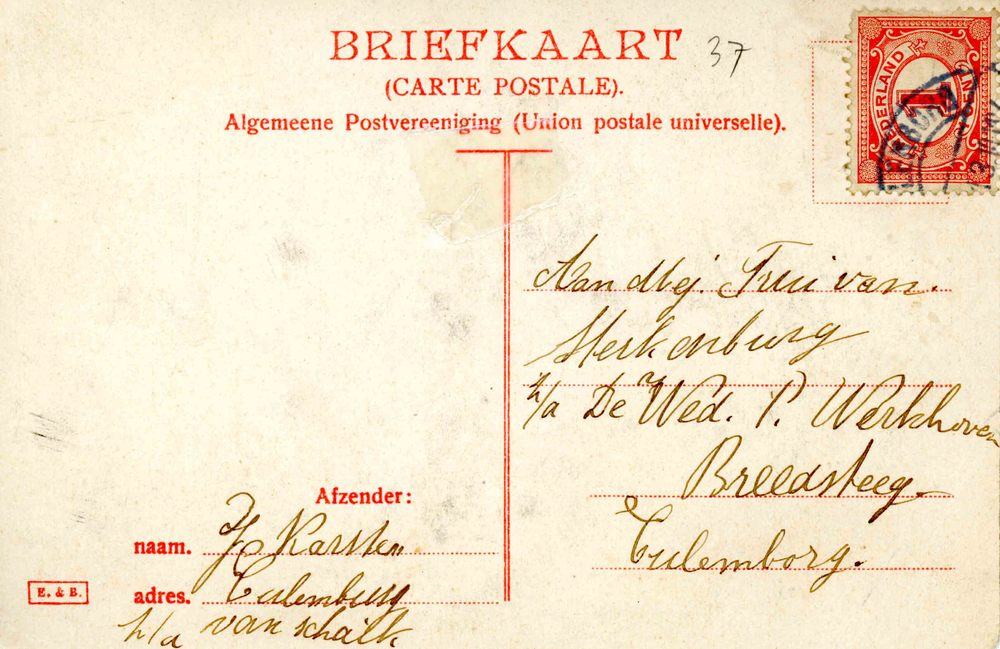 BRIEFKAART
37
(CARTE POSTALE).
Algemeene Postvereeniging (Union postale universelle).
NEDERLAND
1
Aan Mej. Trui van.
Sterkenburg
h/a De Wed. P. Werkhoven
Breedsteeg.
Culemborg.
Afzender:
naam. Karsten
adres. Culemburg
h/a van Schaik
E. & B.